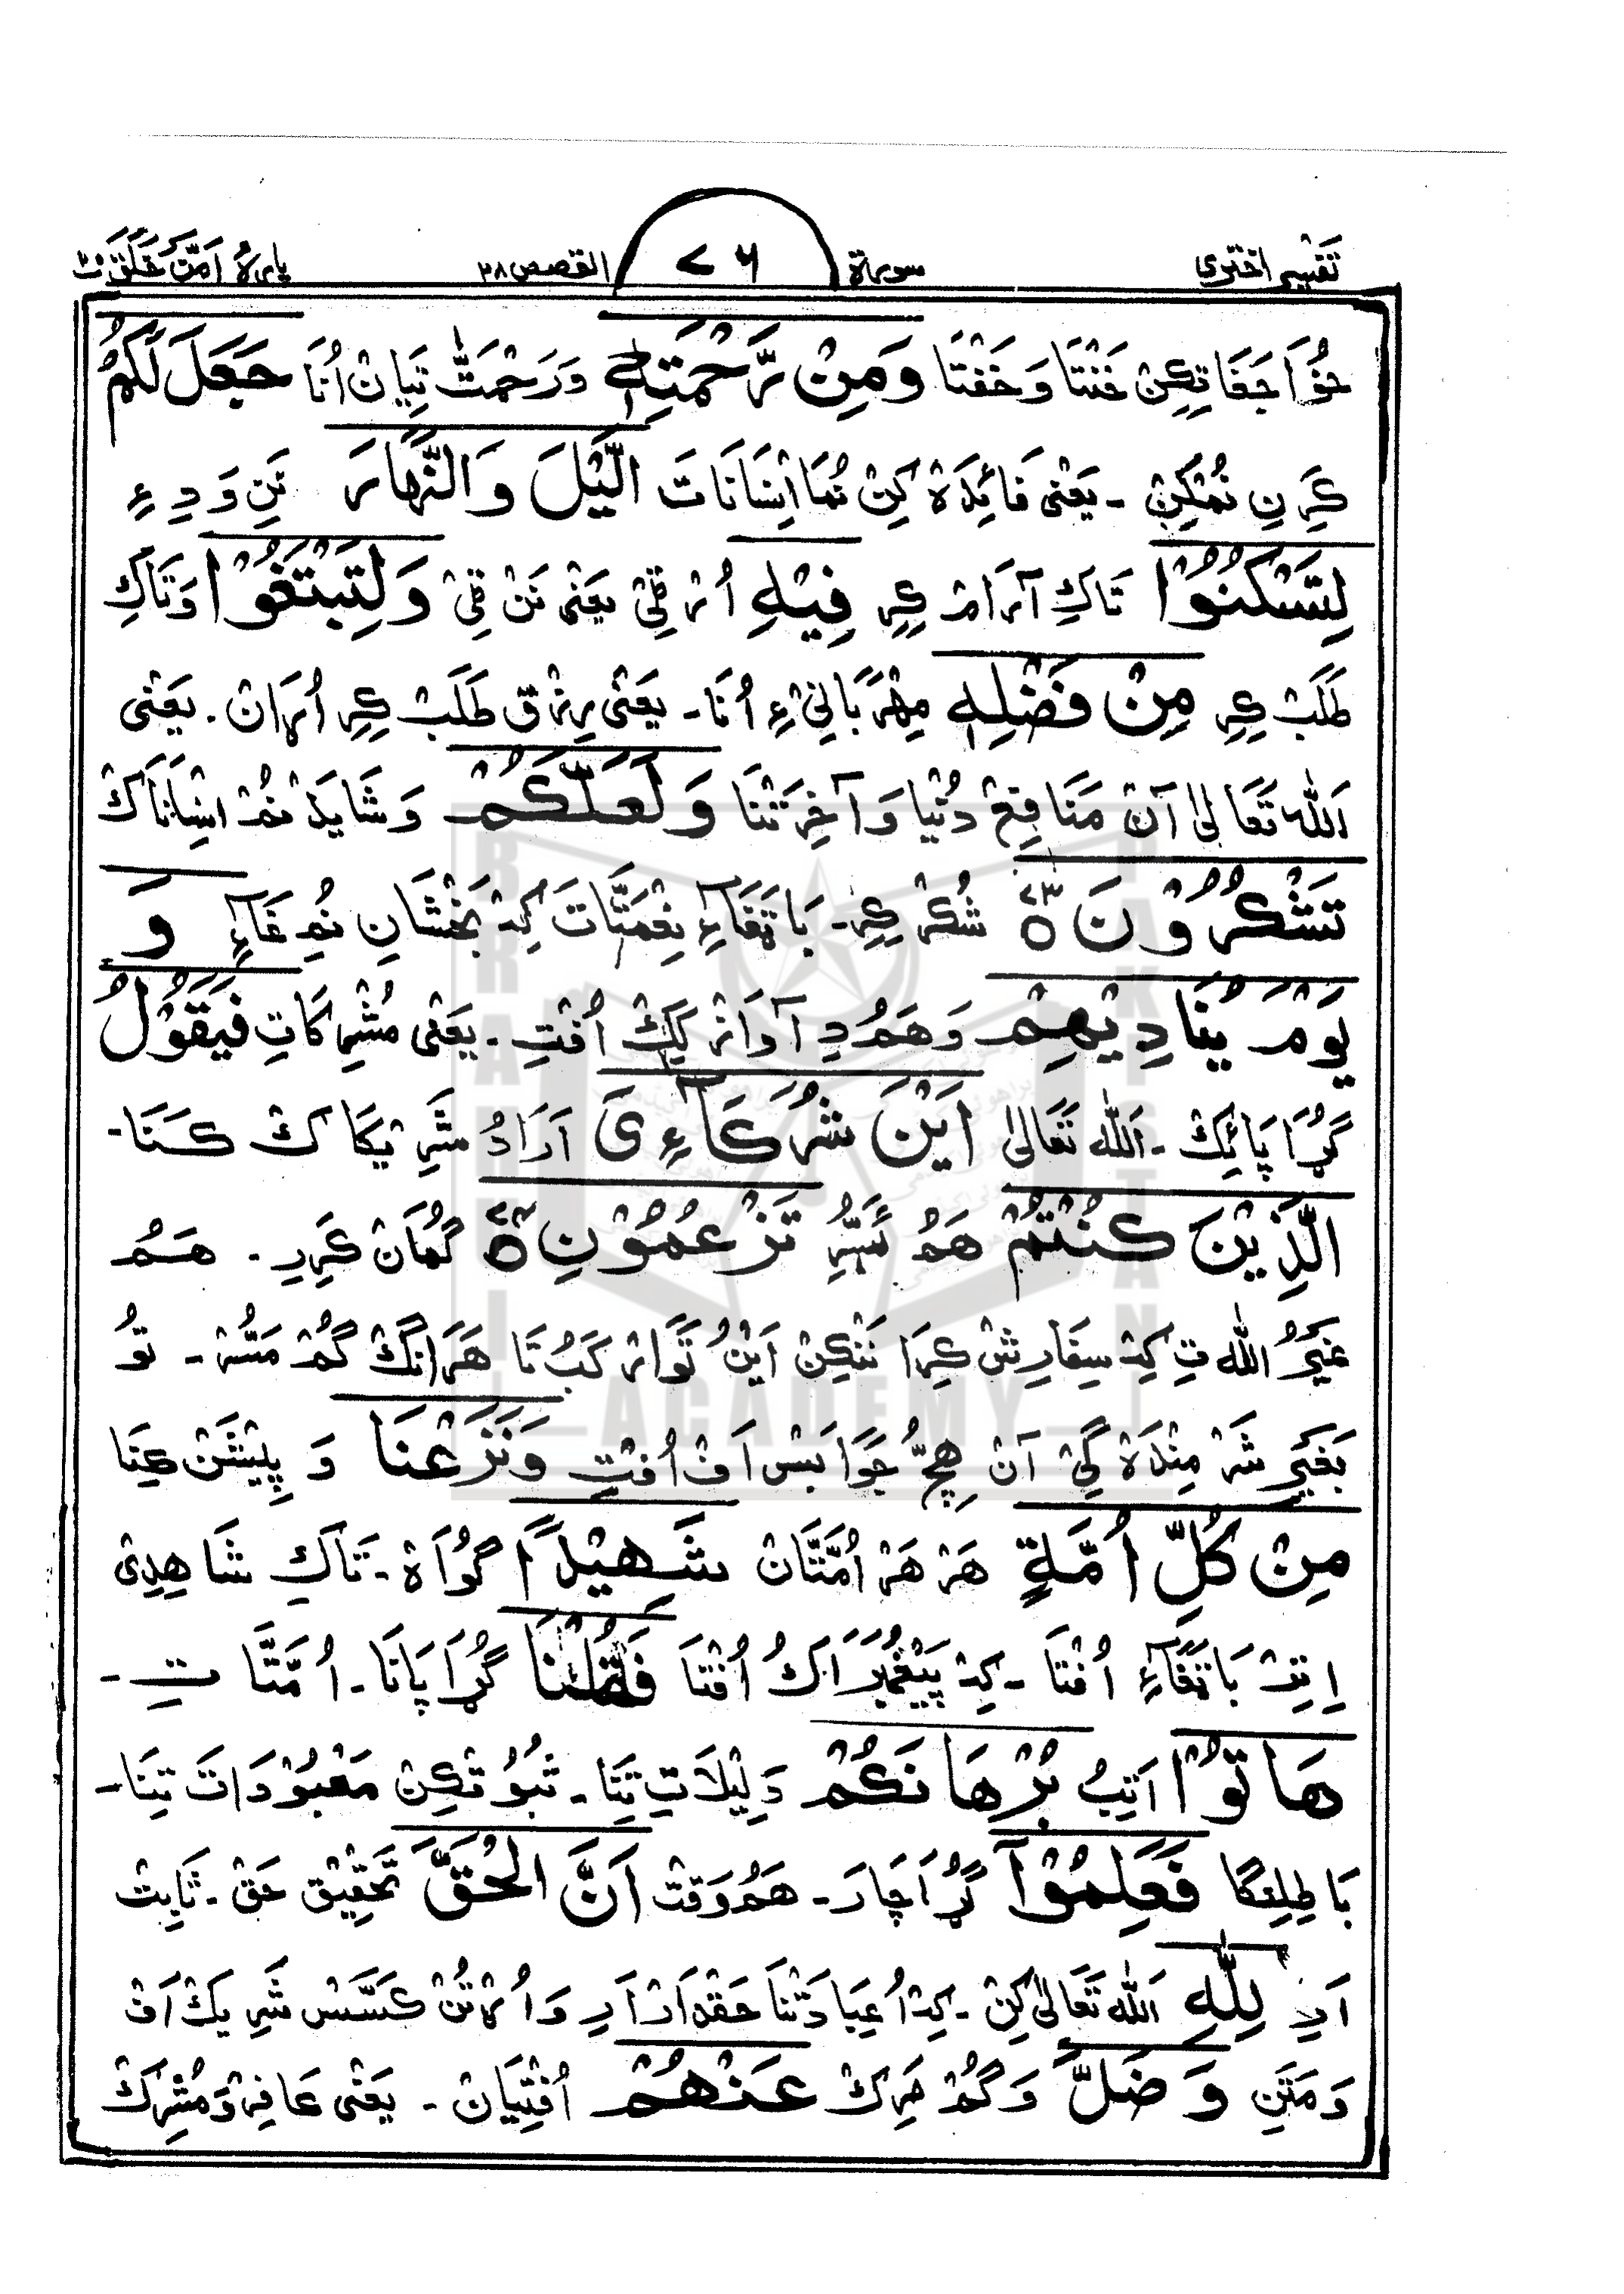 تَفْسِیْرِ اَخْتَرِی سورۃ ۷۶ القصص ۲۸ پارہ اَمَّنْ خَلَقَ ۲۰
خُوْاَ جَفَا تِکِنْ خَنْتَا وَ خَفْتَا وَمِنْ رَّحْمَتِهٖ وَرَحْمَتَّ تِیَانْ اُنَا جَعَلَ لَکُمُ
کَرِ نِ نُمْکِنْ ۔ یَعْنٰی فَائِدَہْ کِنْ نُمَا اِنْسَانَاتَ الَّیْلَ وَالنَّهَارَ نَنِ وَ دِ ءِ
لِتَسْکُنُوْا تَاکِ آرَامْ کِرِ فِیْهِ اُرْ ٹِیْ یَعْنٰی نَنْ ٹِیْ وَلِتَبْتَغُوْا وَتَاکِ
طَلَبْ کِرِ مِنْ فَضْلِهٖ مِهْرَبَانِیْ ءِ اُنَا ۔ یَعْنٰی رِزْق طَلَبْ کِرِ اُرَانْ ۔ یَعْنٰی
اَللّٰہ تَعَالٰی آنْ مَنَافِعْ دُنْیَا وَ آخِرَتْنَا وَلَعَلَّکُمْ وَ شَایَدْ نُمْ اِنْسَانَاکْ
تَشْکُرُوْنَ ۷۳ شُکُرْ کِرِ ۔ بَاتْفَاءِ نِعْمَتَّاتَ کِہْ بَخْشَانِ نُمْ فَاءِ وَ
یَوْمَ یُنَادِیْهِمْ وَ هَمُو دِ آوَازْ کِکْ اُفْتِ ۔ یَعْنٰی مُشْرِکَاتِ فَیَقُوْلُ
گُڑَا پَائِکْ ۔ اَللّٰہ تَعَالٰی اَیْنَ شُرَکَآءِیَ اَرَادُ شَرِیْکَاکْ کَنَا ۔
الَّذِیْنَ کُنْتُمْ هَمُ نُسُرِ تَزْعُمُوْنَ ۷۴ گُمَانْ کَرِرِ ۔ هَمُ
غَیْرُ اللّٰہ تِ کِہْ سِفَارِشْ کِرَا نَنْکِنْ اَیْنُ تَوَارْ کَبُ تَا هَرَانْگْ گُمْ مَسُّرْ ۔ تُو
بَغَیْرِ شَرْمِنْدَہْ گِیْ آنْ هِچُّ جَوَابَسْ اَفْ اُفْتِ وَنَزَعْنَا وَ پِیْشَنْ کِنَا
مِنْ کُلِّ اُمَّةٍ هَرْ هَرْ اُمَّتَانْ شَهِیْدًا گُوَاہْ ۔ تَاکِ شَاهِدِیْ
اِتِرْ بَاتْفَاءِ اُفْتَا ۔ کِہْ پَیْغَمْبَرَاکُ اُفْتَا فَقُلْنَا گُڑَا پَانَا ۔ اُمَّتَّا تِ ۔
هَاتُوْا اَتِبُ بُرْهَانَکُمْ دَلِیْلَاتِ تِنَا ۔ ثُبُوْتْکِنْ مَعْبُوْدَاتَ تِنَا ۔
بَاطِلِنْگَا فَعَلِمُوْٓا گُڑَا چَارَ ۔ هَمُو وَقْتْ اَنَّ الْحَقَّ تَحْقِیْق حَقْ ۔ ثَابِتْ
اَرِ لِلّٰهِ اَللّٰہ تَعَالٰی کِنْ ۔ کِہْ اُ عِبَادَتْنَا حَقْدَارْ اَرِ وَ اُرْتُنْ کَسَّسْ شَرِیکْ اَفْ
وَ مَتَنِ وَضَلَّ وَ گُمْ مَرِکْ عَنْهُمْ اُفْتِیَانْ ۔ یَعْنٰی عَافِرْ وَ مُشْرِکْ